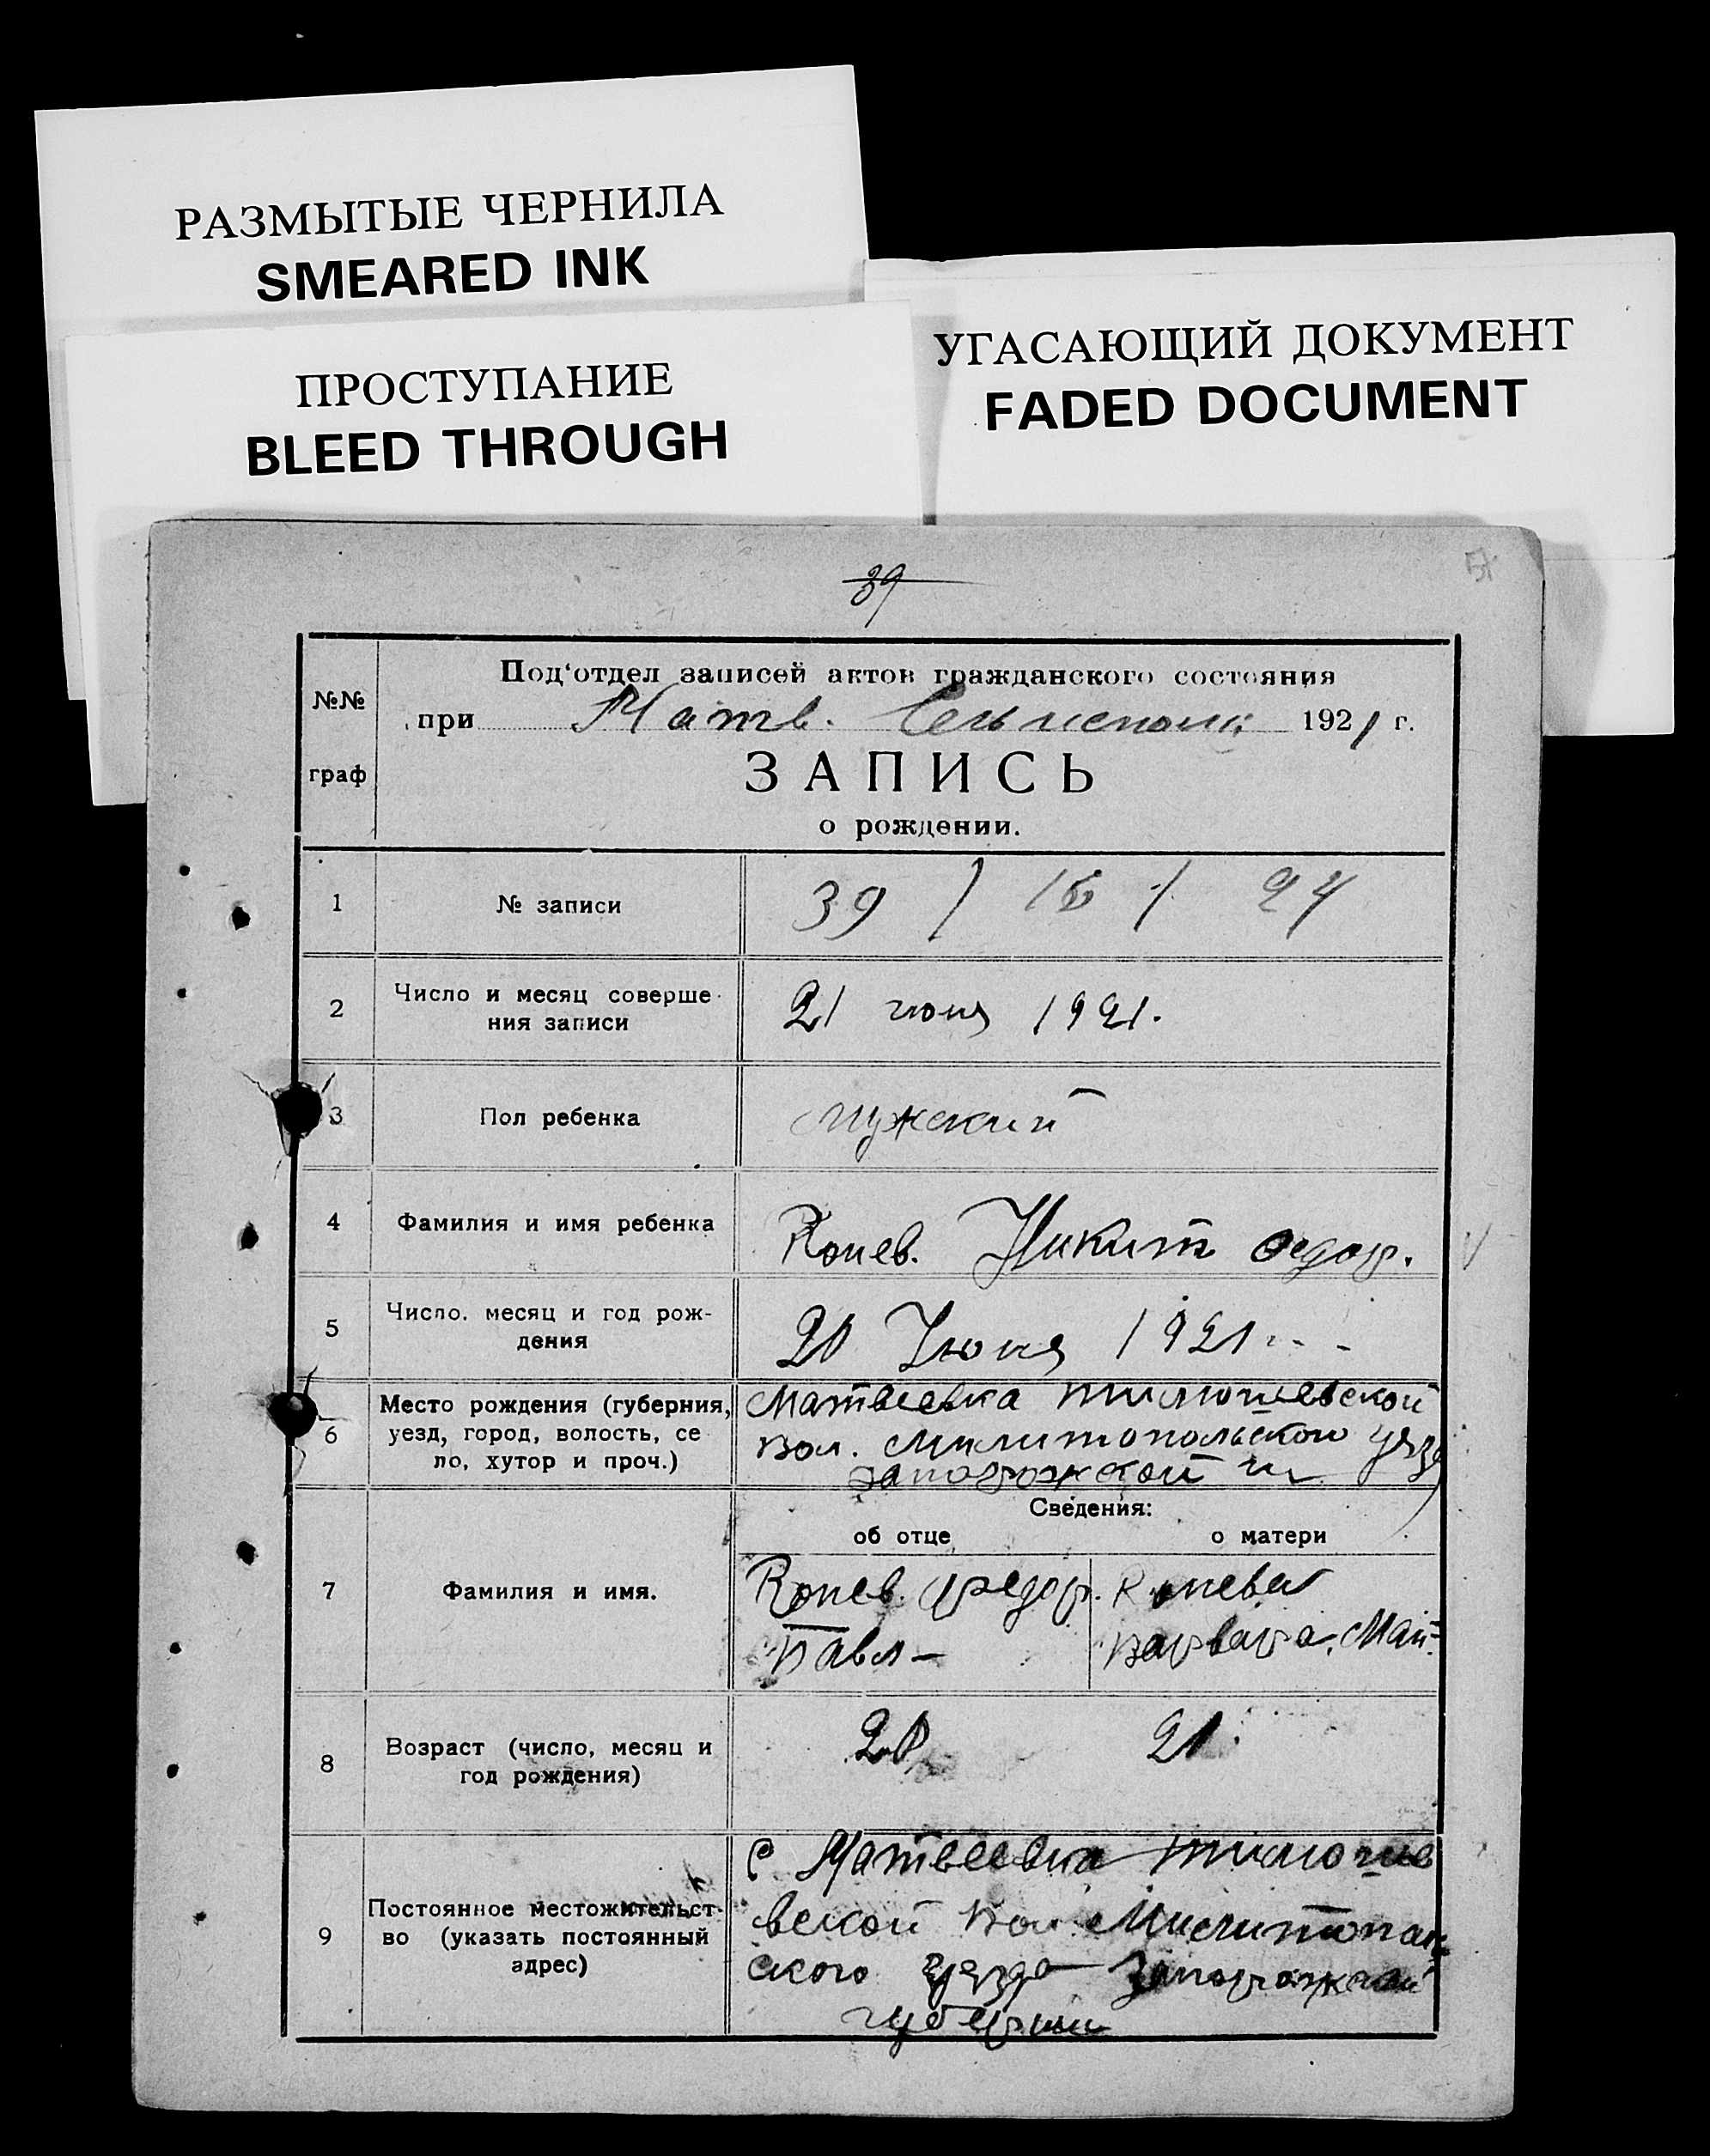 РАЗМЫТЫЕ ЧЕРНИЛА
SMEARED INK
ПРОСТУПАНИЕ
BLEED THROUGH
УГАСАЮЩИЙ ДОКУМЕНТ
FADED DOCUMENT
39
№№
граф
Под‘отдел записей актов гражданского состояния
при Матв. 1921 г.
ЗАПИСЬ
о рождении.
1
№ записи
39 / 16 / 24
2
Число и месяц соверше-
ния записи
21 июня 1921.
3
Пол ребенка
мужский
4
Фамилия и имя ребенка
Конев. Никит Федор.
5
Число. месяц и год рож-
дения
20 Июня 1921
6
Место рождения (губерния,
уезд, город, волость, се
ло, хутор и проч.)
Матвеевка
вол. Милитопольского
запорожской
Сведения:
об отце
о матери
7
Фамилия и имя.
Конев. Федор.
Павл –
Конева
Варвара.
8
Возраст (число, месяц и
год рождения)
20
21
9
Постоянное местожительст-
во (указать постоянный
адрес)
с Матвеевка
вской вол Милитопол
ского уезда Запорожской
губернии